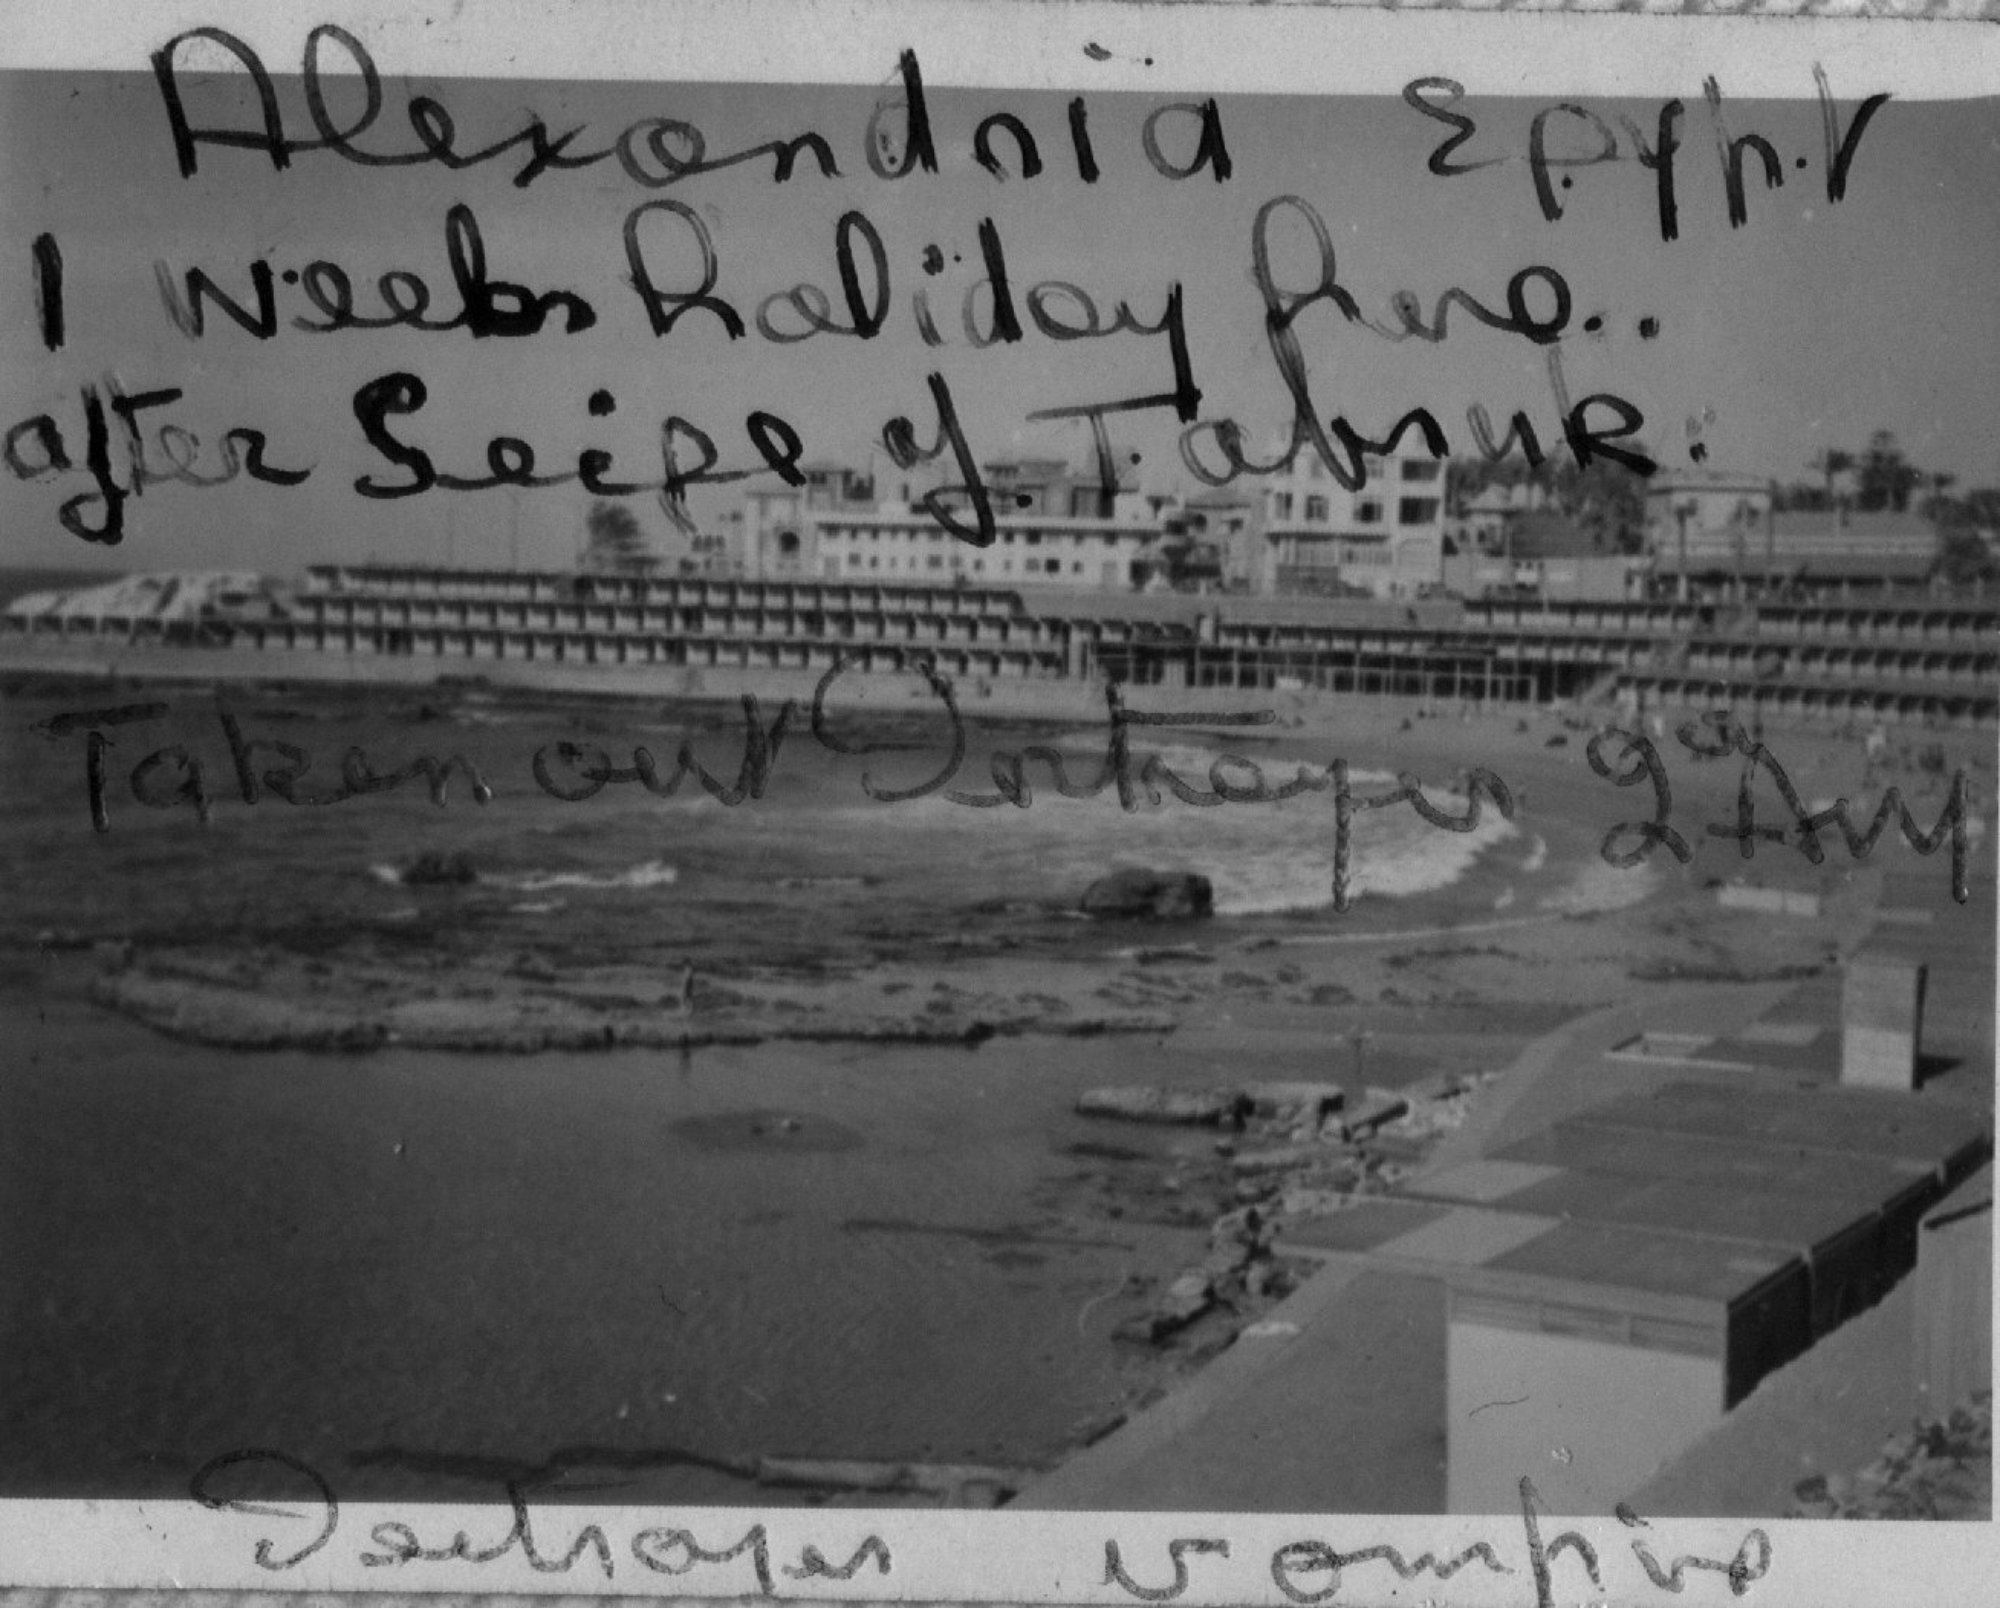 Alexandria Epypt
1 Weeks holiday here..
after Seige of. Tabruk.
Taken out Destroyer
Destroyer vampire